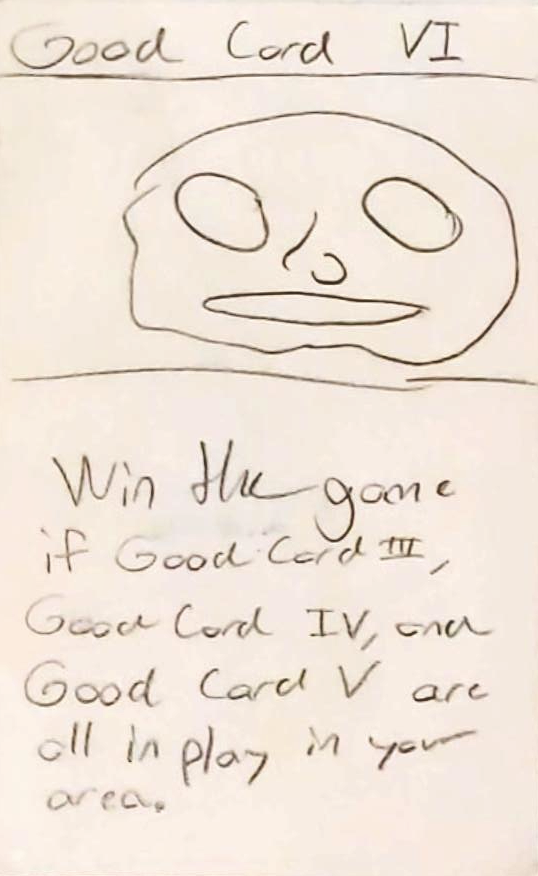 Good Card VI
Win the game
if Good Card III,
Good Card IV, and
Good Card V are
all in play in your
area.